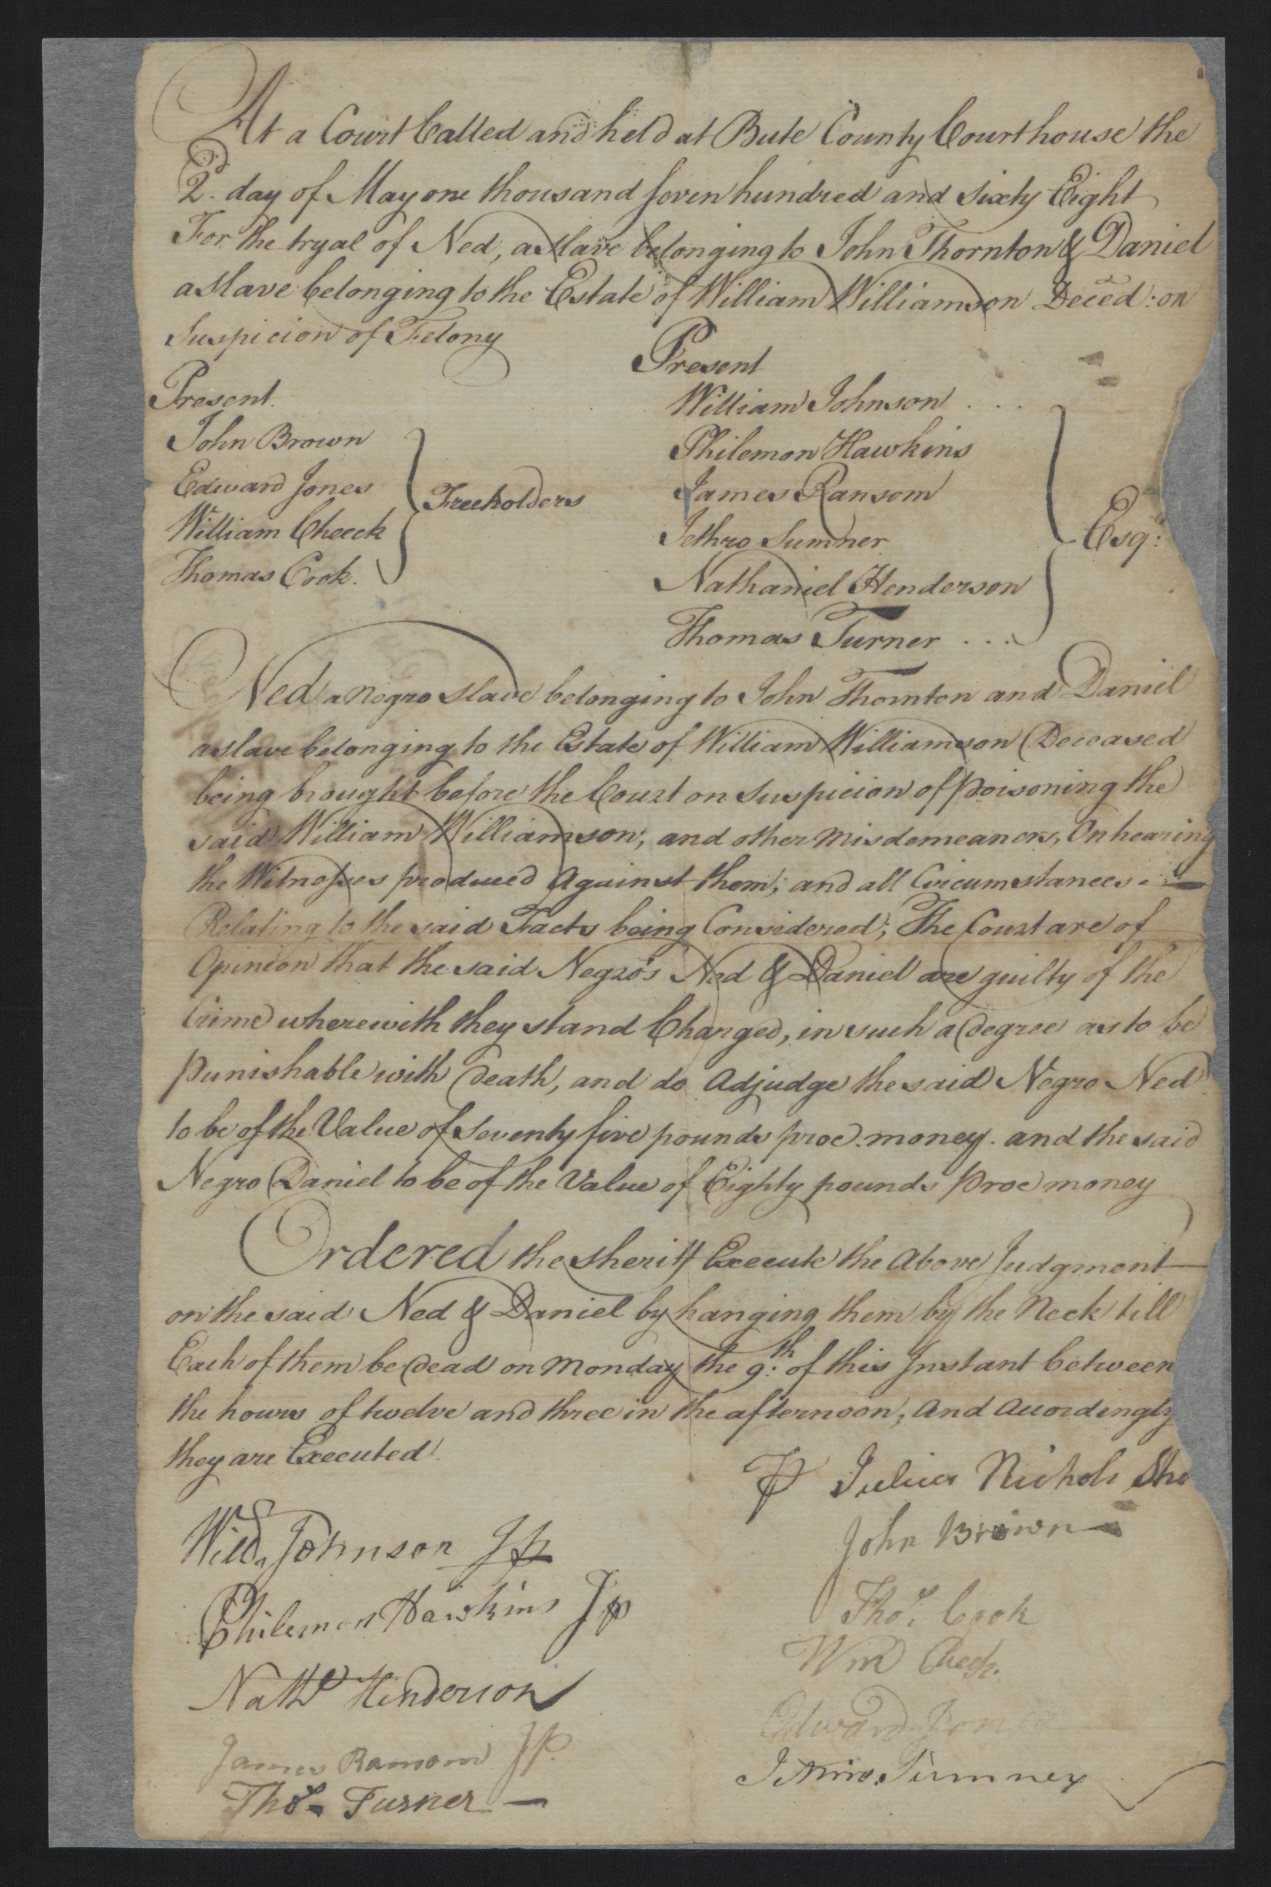 At a Court Called and held at Bute County Courthouse the
2d. day of May one thousand seven hundred and sixty Eight
For the tryal of Ned, a slave belonging to John Thornton & Daniel
a slave belonging to the Estate of William Williamson Deced: on
Suspicion of Felony
Present
John Brown
Edward Jones
William Cheeck
Thomas Cook.
Freeholders
Present
William Johnson ...
Philemon Hawkins
James Ransom
Jethro Sumner
Nathaniel Henderson
Thomas Turner ...
Esqrs:
Ned a Negro slave belonging to John Thornton and Daniel
a slave belonging to the Estate of William Williamson Deceased
being brought before the Court on Suspicion of poisoning the
said William Williamson, and other misdemeaners, On hearing
the Witnesses produced Against them; and all Circumstances
Relating to the said Facts being Considered; The Court are of
Opinion that the said Negro's Ned & Daniel are guilty of the
Crime wherewith they stand Charged, in such a degree as to be
punishable with Death, and do Adjudge the said Negro Ned
to be of the Value of Seventy five pounds proc. money. and the said
Negro Daniel to be of the Value of Eighty pounds Proc money
Ordered the Sheriff Execute the Above Judgment
on the said Ned & Daniel by hanging them by the Neck till
Each of them be Dead on Monday the 9th. of this Instant between
the hours of twelve and three in the afternoon, And Accordingly
they are Executed.
P Julius Nichols She
Willm Johnson JP
Philemon Hawkins JP
Nathl Henderson
James Ransom JP.
Thos Turner
John Brown
Thos. Cook
Wm Cheek.
Edward Jones
Jethro Sumner